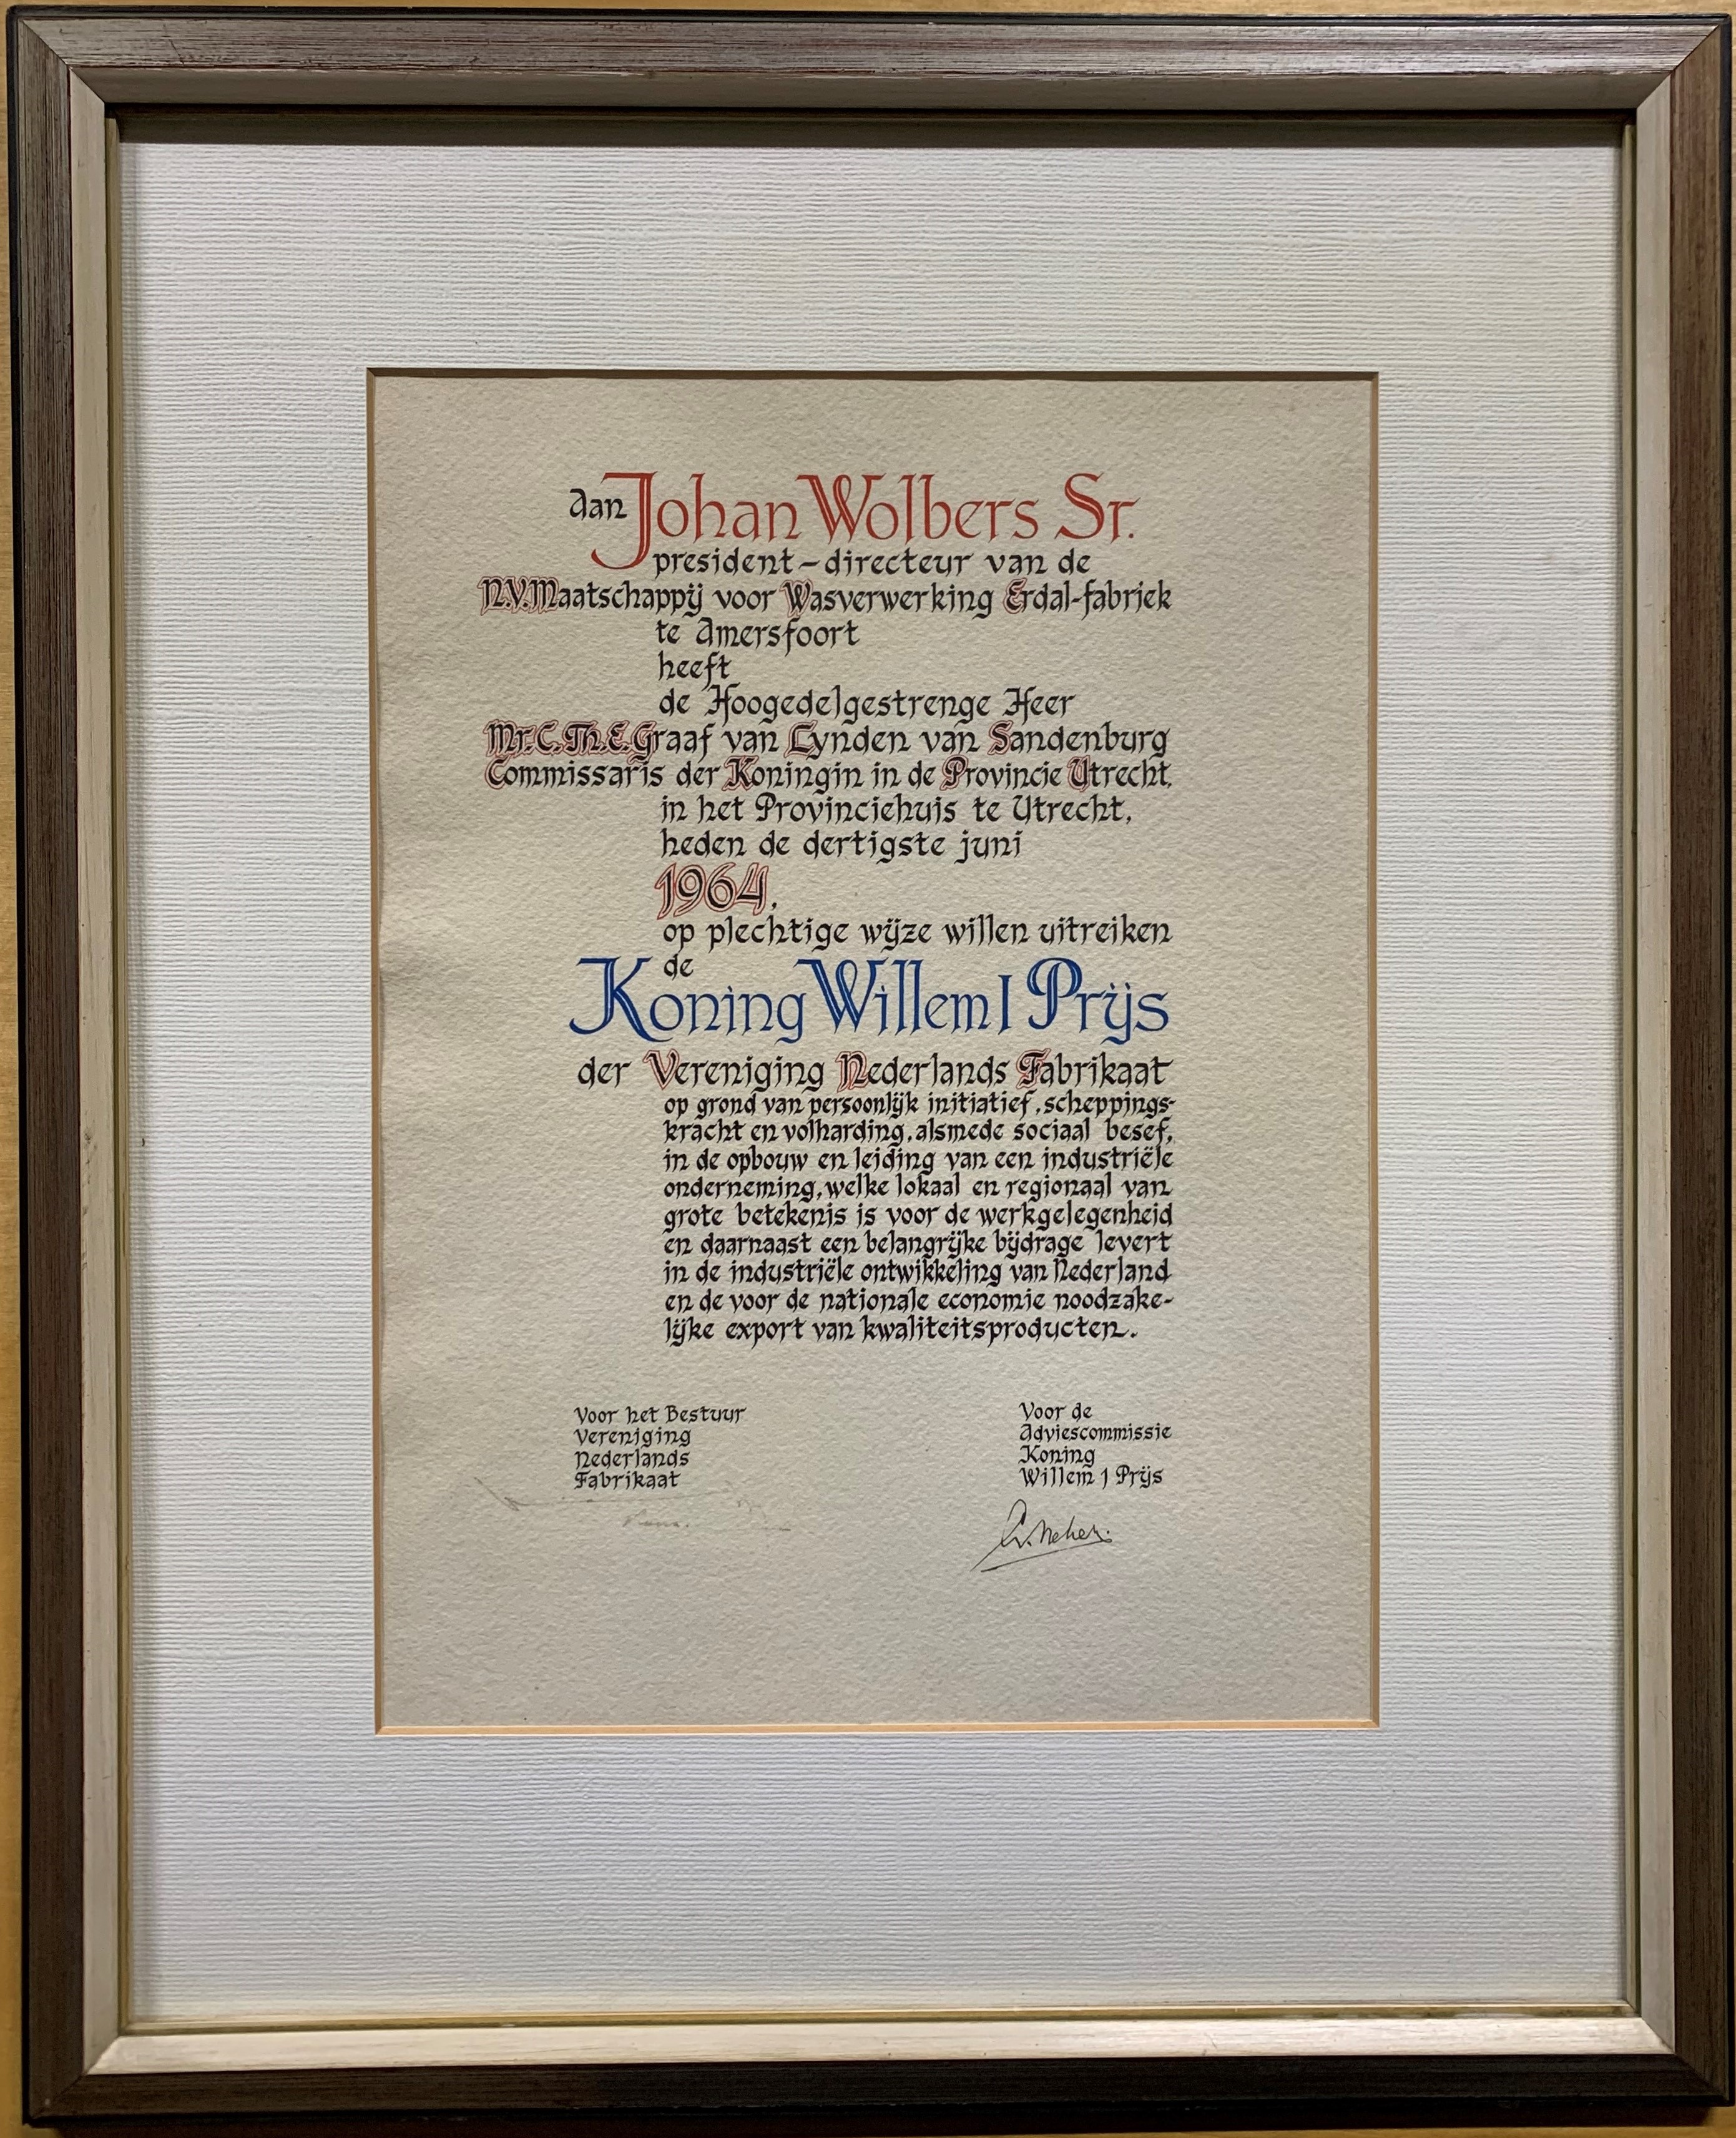 aan Johan Wolbers Sr.
president-directeur van de
N.V. Maatschappij voor Wasverwerking Erdal-fabriek
te Amersfoort
heeft
de Hoogedelgestrenge Heer
Mr. C. Th. E. Graaf van Lynden van Sandenburg
Commissaris der Koningin in de Provincie Utrecht,
in het Provinciehuis te Utrecht,
heden de dertigste juni
1964,
op plechtige wijze willen uitreiken
de
Koning Willem I Prijs
der Vereniging Nederlands Fabrikaat
op grond van persoonlijk initiatief, scheppings-
kracht en volharding, alsmede sociaal besef,
in de opbouw en leiding van een industriële
onderneming, welke lokaal en regionaal van
grote betekenis is voor de werkgelegenheid
en daarnaast een belangrijke bijdrage levert
in de industriële ontwikkeling van Nederland
en de voor de nationale economie noodzake-
lijke export van kwaliteitsproducten.
Voor het Bestuur
Vereniging
Nederlands
Fabrikaat
Voor de
Adviescommissie
Koning
Willem I Prijs